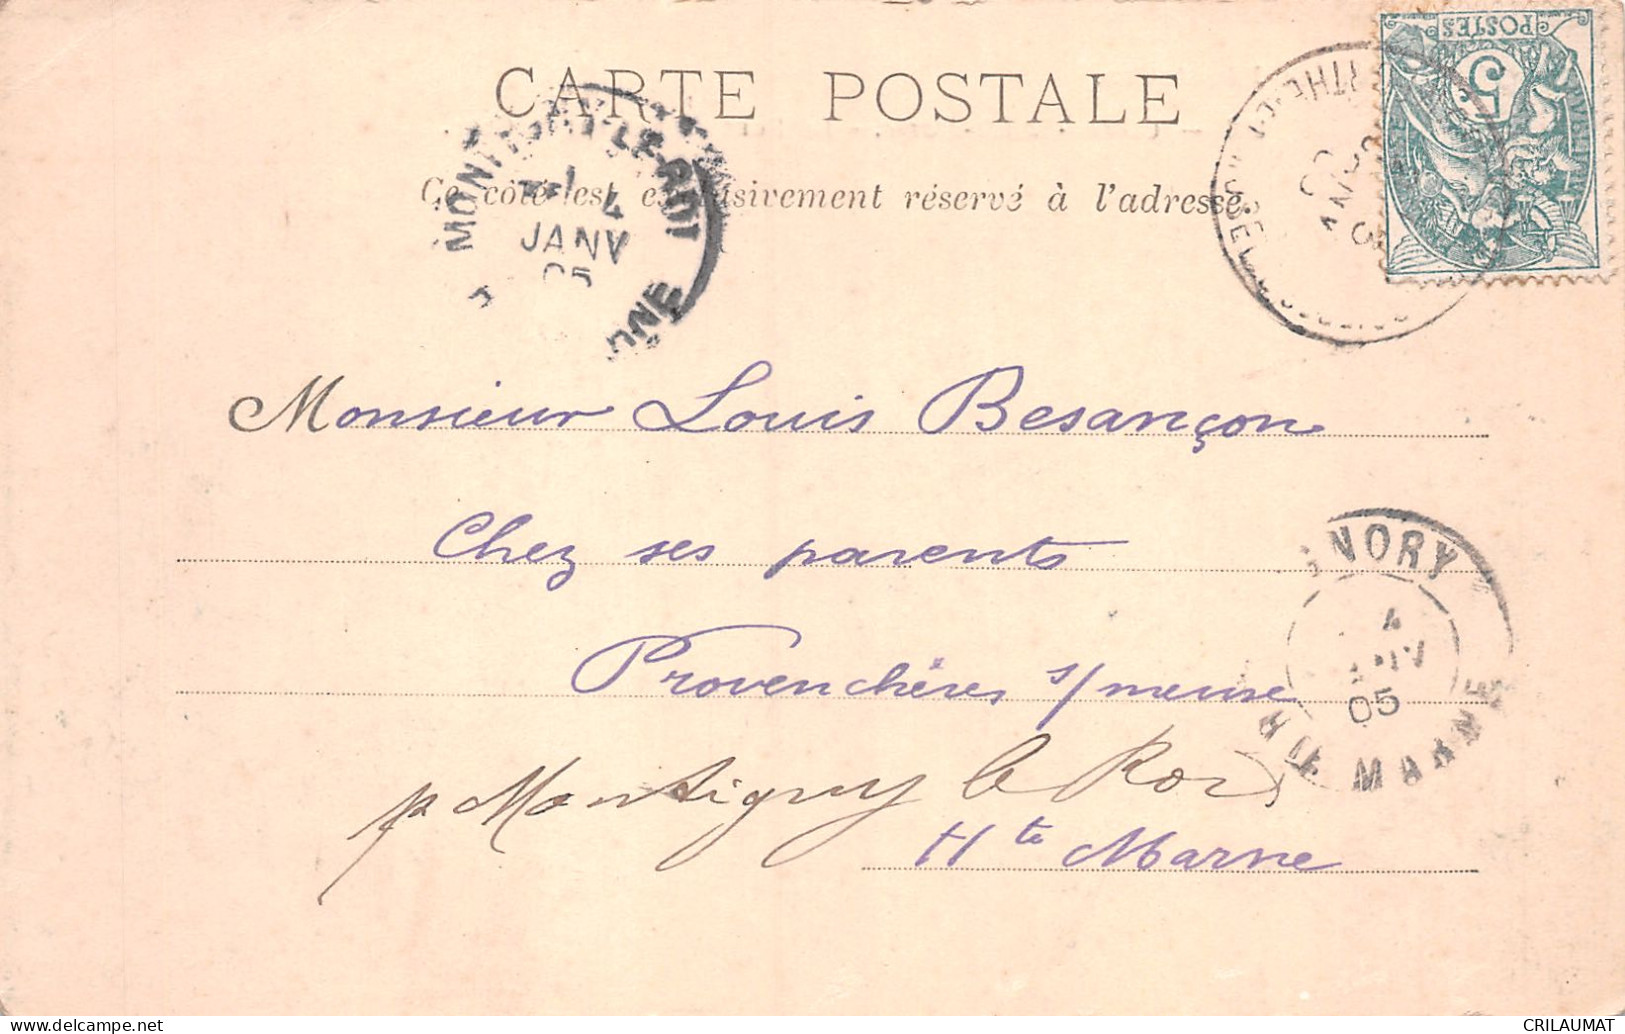 CARTE POSTALE
Ce côté est exclusivement réservé à l'adresse.
POSTES
5
LE-ROI
4
JANV
05
Monsieur Louis Besançon
Chez ses parents
Provenchères s/ meuse
pr Montigny le Roi
Hte Marne
GNORY
4
05
HTE MARNE
CRILAUMAT